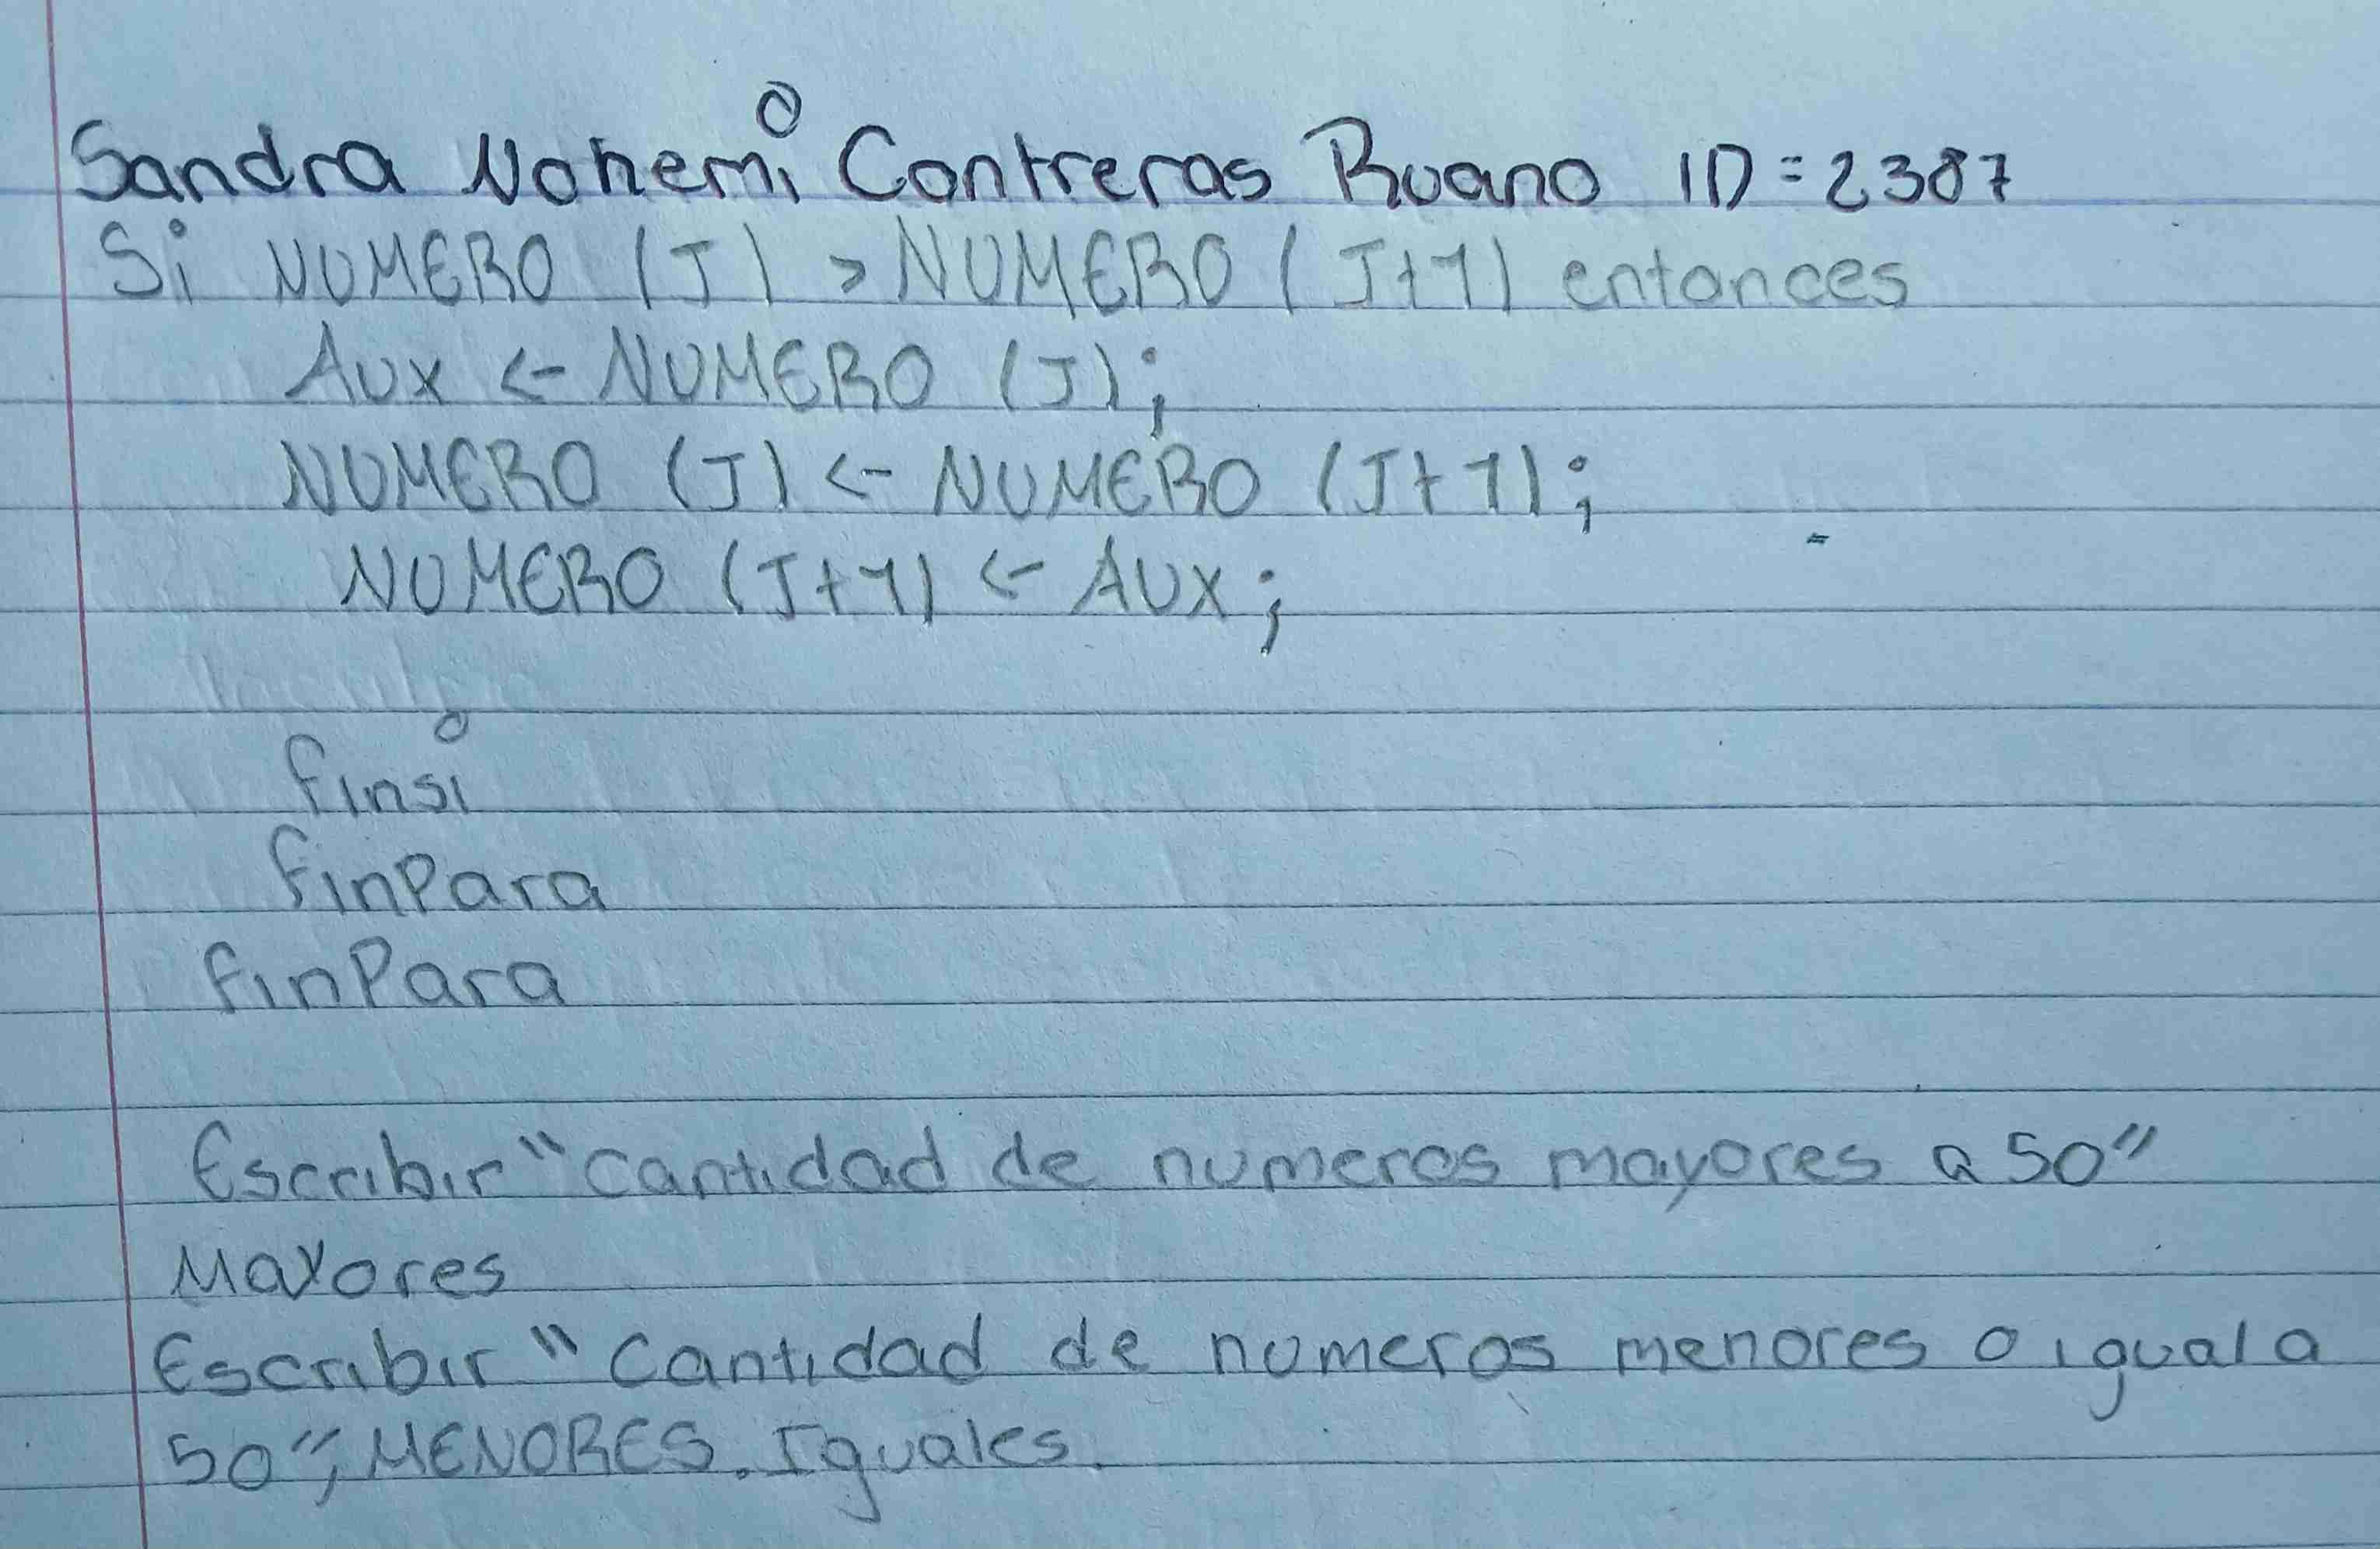 Sandra Nohemi Contreras Ruano ID=2387
Si NUMERO (J) > NUMERO (J+1) entonces
AUX <- NUMERO (J);
NUMERO (J) <- NUMERO (J+1);
NUMERO (J+1) <- AUX;
finsi
finPara
finPara
Escribir "cantidad de numeros mayores a 50"
Mayores
Escribir "Cantidad de numeros menores o igual a
50", MENORES. Iguales.